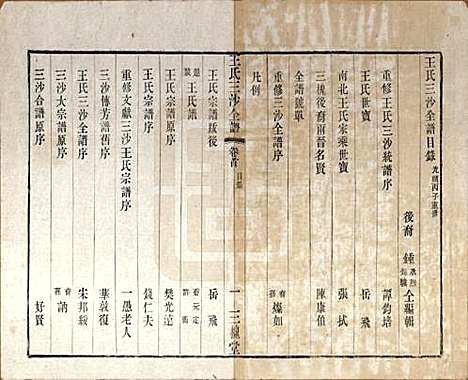 王氏三沙全譜目錄 光緒丙子重修
後裔 鍾 全編輯
重修王氏三沙統譜序 譚鈞培
王氏世寶 岳飛
南北王氏宗乘世寶 張栻
三槐後裔甫晉名賢 陳康伯
全譜號單
重修三沙全譜序 裔 燦如
凡例
王氏三沙全譜 卷首 目錄 一 三槐堂
王氏宗譜跋後 岳飛
王氏譜
王氏宗譜原序 樊光遠
王氏宗譜序 錢仁夫
重修文獻三沙王氏宗譜序 一愚老人
三沙傳芳譜舊序 華敦復
王氏三沙全譜序 宋邦綏
三沙大宗譜原序 裔 訥
三沙合譜原序 好賢